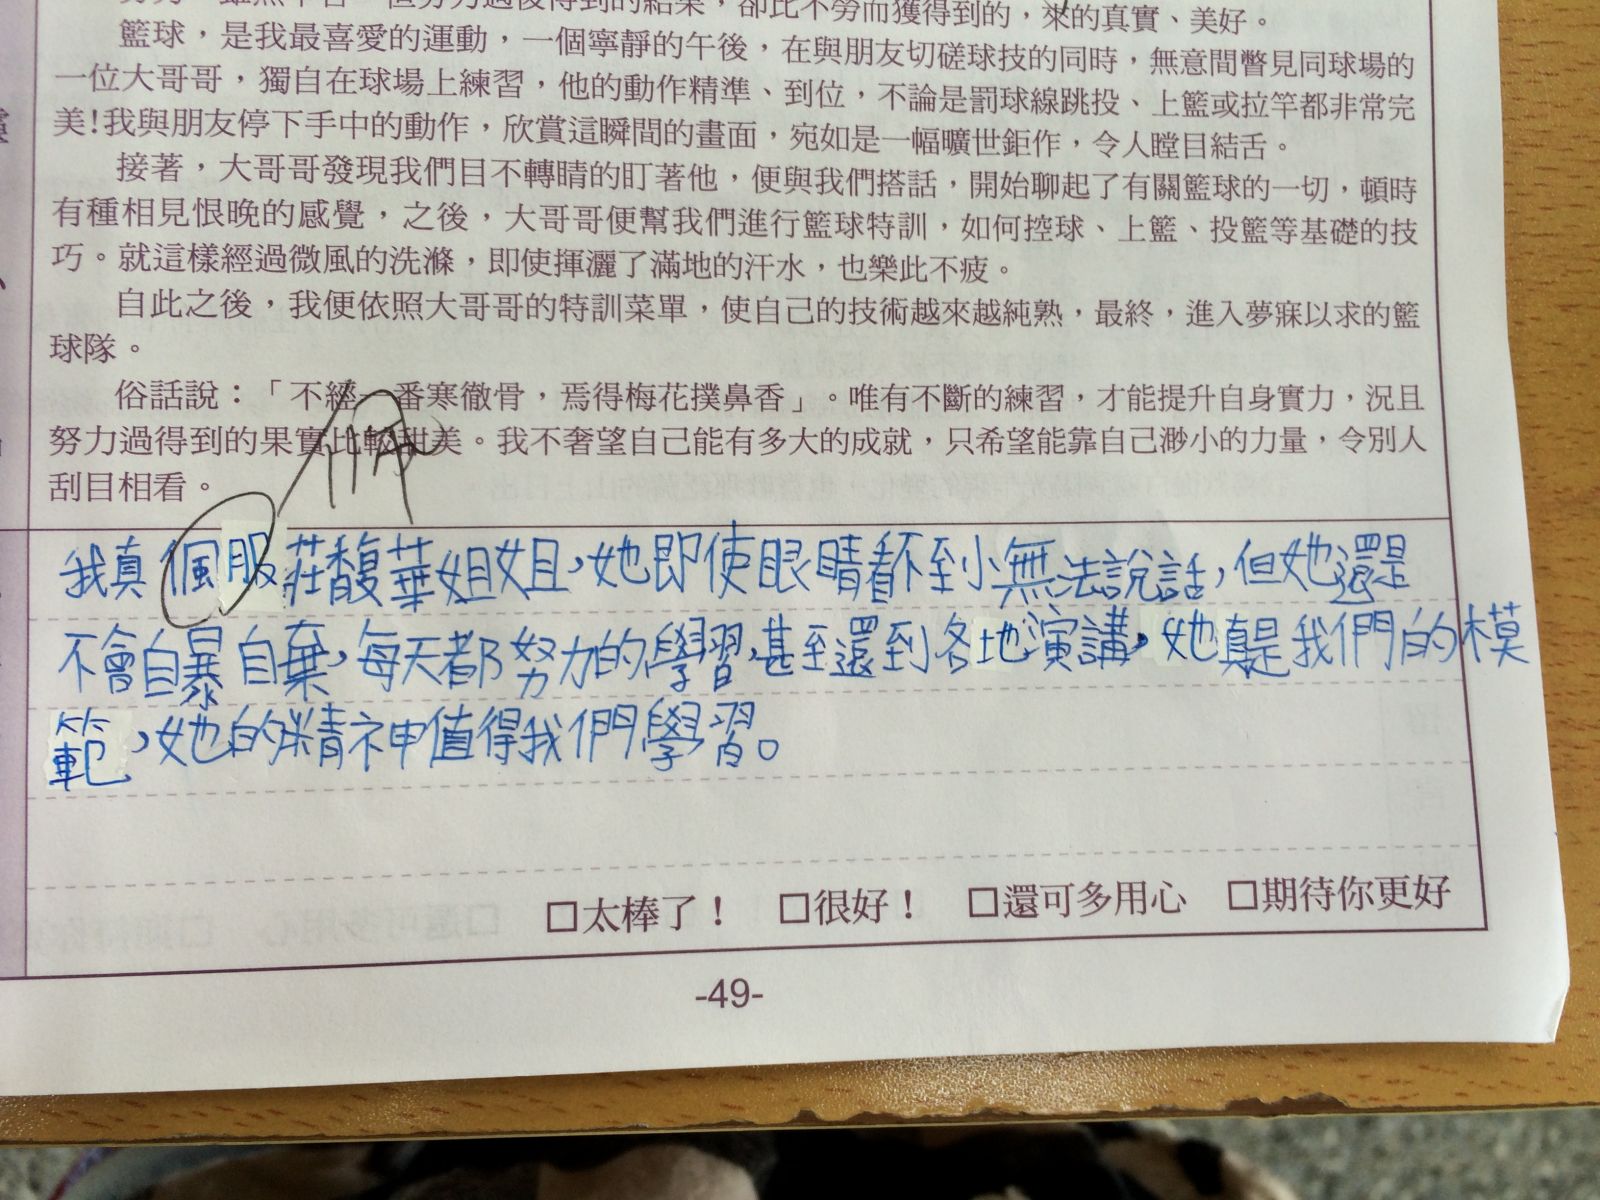 籃球，是我最喜愛的運動，一個寧靜的午後，在與朋友切磋球技的同時，無意間瞥見同球場的
一位大哥哥，獨自在球場上練習，他的動作精準、到位，不論是罰球線跳投、上籃或拉竿都非常完
美!我與朋友停下手中的動作，欣賞這瞬間的畫面，宛如是一幅曠世鉅作，令人瞠目結舌。
接著，大哥哥發現我們目不轉睛的盯著他，便與我們搭話，開始聊起了有關籃球的一切，頓時
有種相見恨晚的感覺，之後，大哥哥便幫我們進行籃球特訓，如何控球、上籃、投籃等基礎的技
巧。就這樣經過微風的洗滌，即使揮灑了滿地的汗水，也樂此不疲。
自此之後，我便依照大哥哥的特訓菜單，使自己的技術越來越純熟，最終，進入夢寐以求的籃
球隊。
俗話說：「不經一番寒徹骨，焉得梅花撲鼻香」。唯有不斷的練習，才能提升自身實力，況且
努力過得到的果實比較甜美。我不奢望自己能有多大的成就，只希望能靠自己渺小的力量，令別人
刮目相看。
我真佩服莊馥華姐姐，她即使眼睛看不到小無法說話，但她還是
不會自暴自棄，每天都努力的學習，甚至還到各地演講，她真是我們的模
範，她的精神值得我們學習。
□太棒了！ □很好！ □還可多用心 □期待你更好
-49-